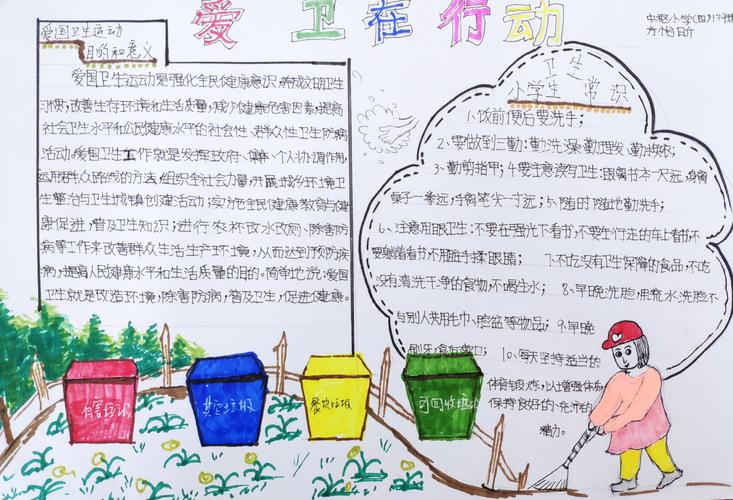 爱卫在行动
中枢小学(四)
爱国卫生运动
目的和意义
爱国卫生运动是强化全民健康意识,养成文明卫生
习惯,改善生存环境和生活质量,减少健康危害因素,提高
社会卫生水平和公民健康水平的社会性、群众性卫生防病
活动,爱国卫生工作就是发挥政府、集体、个人协调作用,
运用群众路线的方法,组织全社会力量,开展城乡环境卫
生整治与卫生城镇创建活动;实施全民健康教育与健
康促进,普及卫生知识;进行农村改水改厕、除害防
病等工作来改善群众生活生产环境,从而达到预防疾
病,提高人民健康水平和生活质量的目的。简单地说:爱国
卫生就是改造环境,除害防病,普及卫生,促进健康。
卫生
小学生 常识
1、饭前便后要洗手;
2、要做到三勤:勤洗澡、勤理发、勤换衣;
3、勤剪指甲;4、要注意读写卫生:眼离书本一尺远,身离
桌子一拳远,手离笔尖一寸远;5、随时随地勤洗手;
6、注意用眼卫生:不要在强光下看书,不要在行走的车上看书,不
要躺着看书,不用脏手揉眼睛; 7、不吃没有卫生保障的食品,不吃
没有清洗干净的食物,不喝生水; 8、早晚洗脸,用流水洗脸,不
与别人共用毛巾、脸盆等物品;9、早晚
刷牙,
10、每天坚持适当的
体育锻炼,以增强体质
保持良好的、充沛的
精力。
有害垃圾
其它垃圾
餐饮垃圾
可回收垃圾